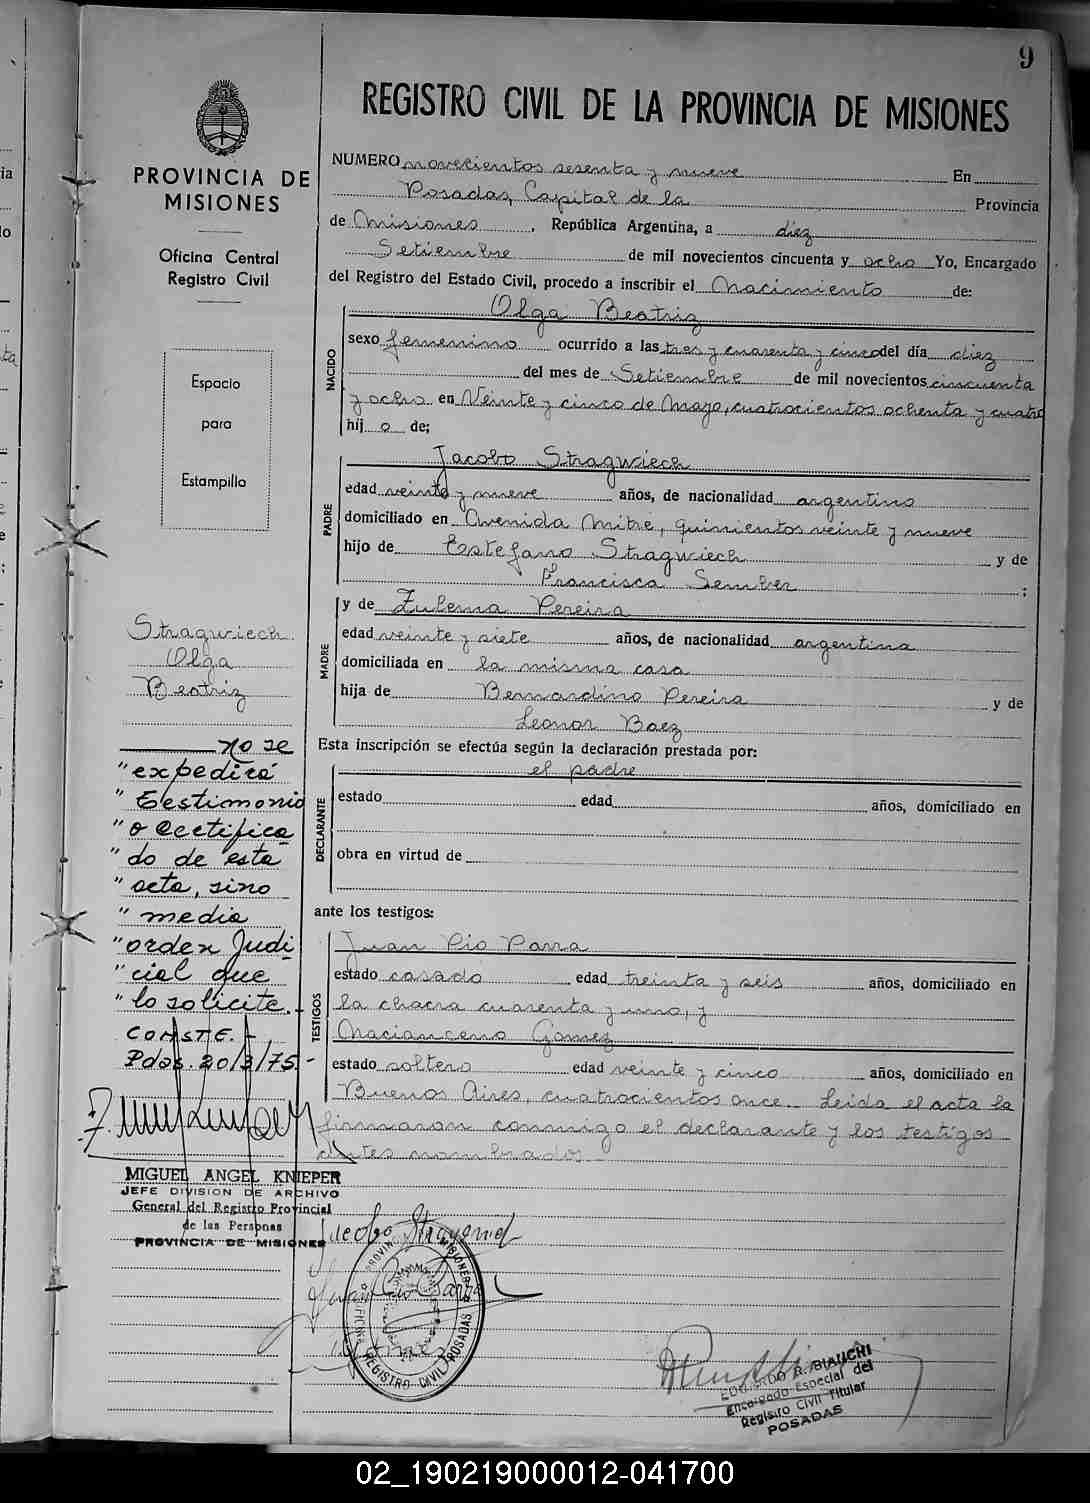 9
REGISTRO CIVIL DE LA PROVINCIA DE MISIONES
PROVINCIA DE
MISIONES
Oficina Central
Registro Civil
Espacio
para
Estampilla
NUMERO novecientos sesenta y nueve En
Posadas, Capital de la Provincia
de Misiones, República Argentina, a diez
Setiembre de mil novecientos cincuenta y ocho Yo, Encargado
del Registro del Estado Civil, procedo a inscribir el Nacimiento de:
Olga Beatriz
NACIDO
sexo femenino ocurrido a las tres y cuarenta y cinco del día diez
del mes de Setiembre de mil novecientos cincuenta
y ocho en Veinte y cinco de Mayo, cuatrocientos ochenta y cuatro
hij o de;
Jacobo Stragwiech
PADRE
edad veinte y nueve años, de nacionalidad argentino
domiciliado en Avenida Mitre, quinientos veinte y nueve
hijo de Estefano Stragwiech y de
Francisca Sember ;
MADRE
y de Zulema Pereira
edad veinte y siete años, de nacionalidad argentina
domiciliada en la misma casa
hija de Bernardino Pereira y de
Leonor Baez
Esta inscripción se efectúa según la declaración prestada por:
el padre
DECLARANTE
estado edad años, domiciliado en
obra en virtud de
ante los testigos:
TESTIGOS
Juan Pio Parra
estado casado edad treinta y seis años, domiciliado en
la chacra cuarenta y uno, y
Nacianceno Gomez
estado soltero edad veinte y cinco años, domiciliado en
Buenos Aires, cuatrocientos once. Leida el acta la
firmaron conmigo el declarante y los testigos
antes nombrados
Stragwiech
Olga
Beatriz
no se
"expedirá
"Testimonio
"o Certifica
"do de esta
"acta, sino
"media
"orden Judi
"cial que
"lo solicite.-
CONSTE.-
Pdas. 20/3/75.-
MIGUEL ANGEL KNIEPER
JEFE DIVISION DE ARCHIVO
General del Registro Provincial
de las Personas
PROVINCIA DE MISIONES
PROVINCIA MISIONES
OFICINA REGISTRO CIVIL POSADAS
EDUARDO R. BIANCHI
Encargado Especial del
Registro Civil Titular
POSADAS
02_190219000012-041700